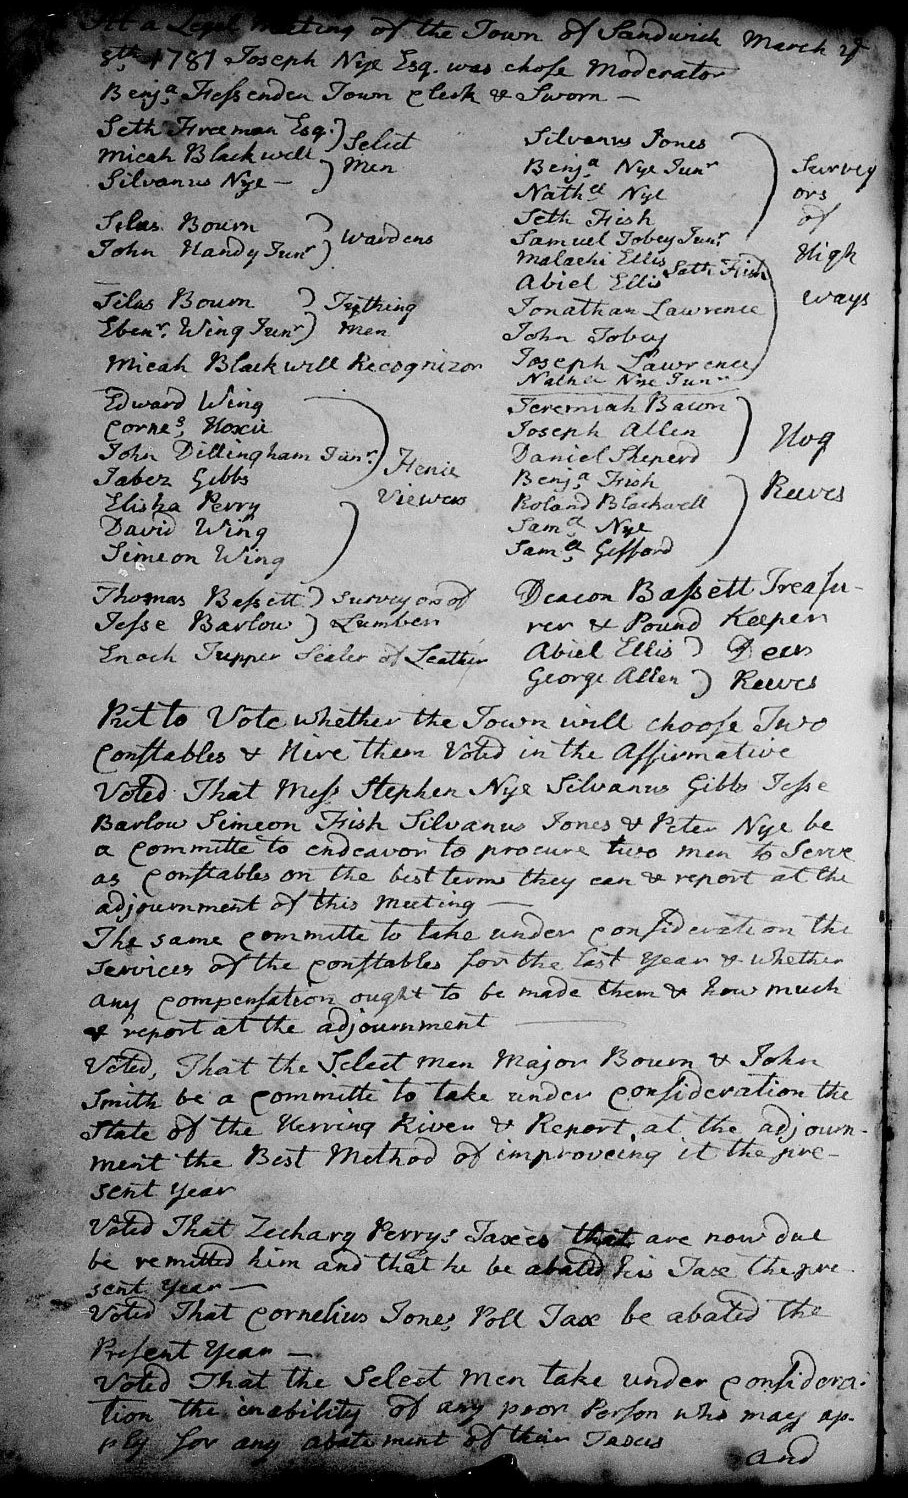 At a Legal Meeting of the Town of Sandwich March ye
8th 1787 Joseph Nye Esq. was chose Moderator
Benja Fessenden Town Clerk & Sworn —
Seth Freeman Esq.
Micah Blackwell
Silvanus Nye —
Select
Men
Silas Bourn
John Handy Junr
Wardens
Silas Bourn
Ebenr. Wing Junr
Tything
Men
Micah Blackwell Recognizor
Edward Wing
Corns. Hoxie
John Dillingham Junr.
Jabez Gibbs
Elisha Perry
David Wing
Simeon Wing
Fence
Viewers
Thomas Bassett
Jesse Barlow
Surveyors of
Lumber
Enoch Tupper Sealer of Leather
Silvanus Jones
Benja Nye Junr
Nathll Nye
Seth Fish
Samuel Tobey Junr
Malachi Ellis
Seth Fish
Abiel Ellis
Jonathan Lawrence
John Tobey
Joseph Lawrence
Nathll Nye Junr
Survey
ors
of
High
ways
Jeremiah Bacon
Joseph Allen
Daniel Sheperd
Benja Fish
Roland Blackwell
Samll Nye
Samll Gifford
Hog
Reeves
Deacon Bassett Treasu-
rer & Pound Keeper
Abiel Ellis
George Allen
Deer
Reeves
Put to Vote whether the Town will choose Two
Constables & Hire them Voted in the Affirmative
Voted That Mess Stephen Nye Silvanus Gibbs Jesse
Barlow Simeon Fish Silvanus Jones & Peter Nye be
a Committe to endeavor to procure two men to Serve
as Constables on the best terms they can & report at the
adjournment of this Meeting —
The same Committe to take under Consideration the
Services of the Constables for the last Year & whether
any Compensation ought to be made them & how much
& report at the adjournment —
Voted, That the Select men Major Bourn & John
Smith be a Committe to take under Consideration the
State of the Herring River & Report at the adjourn-
ment the Best Method of improveing it the pre-
sent Year
Voted That Zechary Perrys Taxes that are now due
be remitted him and that he be abated his Tax the pre-
sent Year —
Voted That Cornelius Jones Poll Tax be abated the
Present Year —
Voted That the Select Men take under Considera-
tion the inability of any poor Person who may ap-
ply for any abatement of their Taxes
and